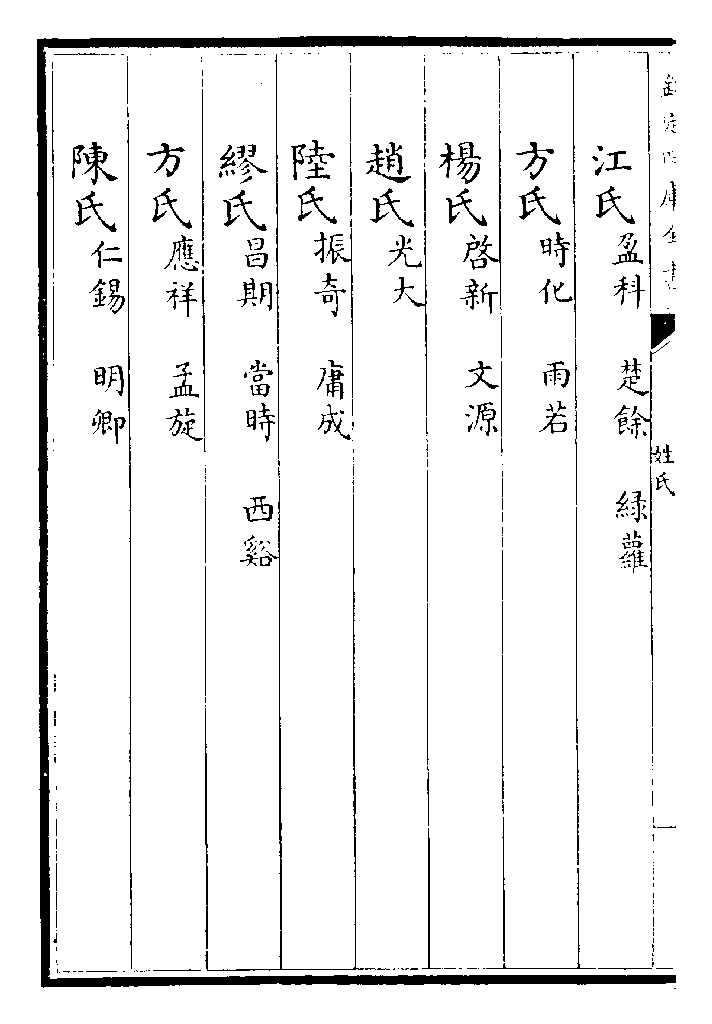 欽定四庫全書
姓氏
江氏盈科 楚餘 緑蘿
方氏時化 雨若
楊氏啓新 文源
趙氏光大
陸氏振奇 庸成
繆氏昌期 當時 西谿
方氏應祥 孟旋
陳氏仁錫 明卿